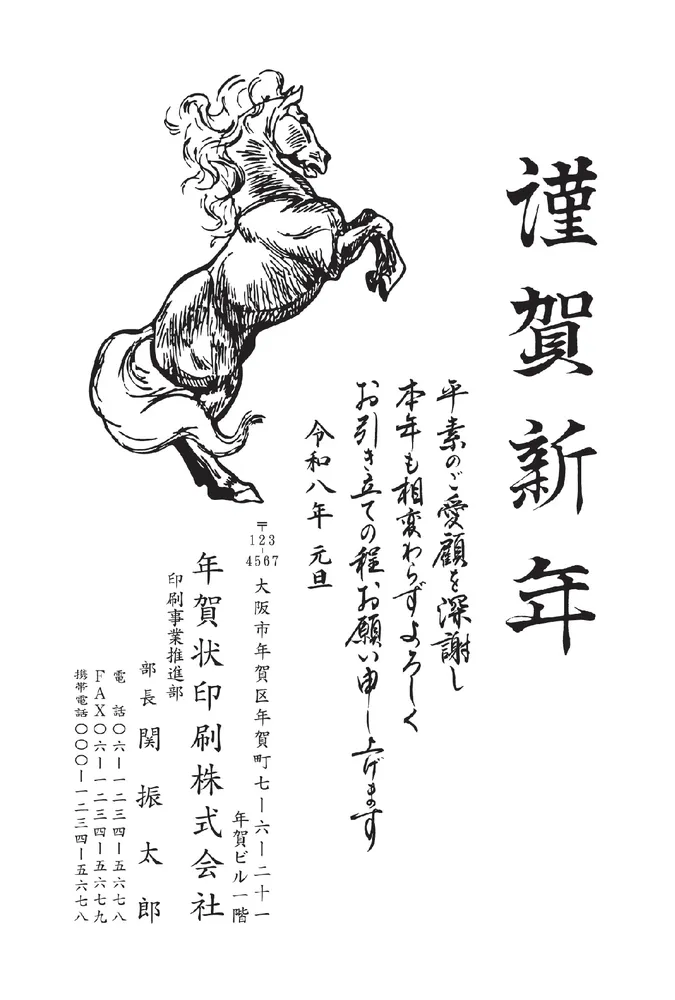 謹賀新年
平素のご愛顧を深謝し
本年も相変わらずよろしく
お引き立ての程お願い申し上げます
令和八年 元旦
〒123-4567
大阪市年賀区年賀町七ー六ー二十一
年賀ビル一階
年賀状印刷株式会社
印刷事業推進部
部長 関 振太郎
電 話〇六ー一二三四ー五六七八
FAX〇六ー一二三四ー五六七九
携帯電話〇〇〇ー一二三四ー五六七八